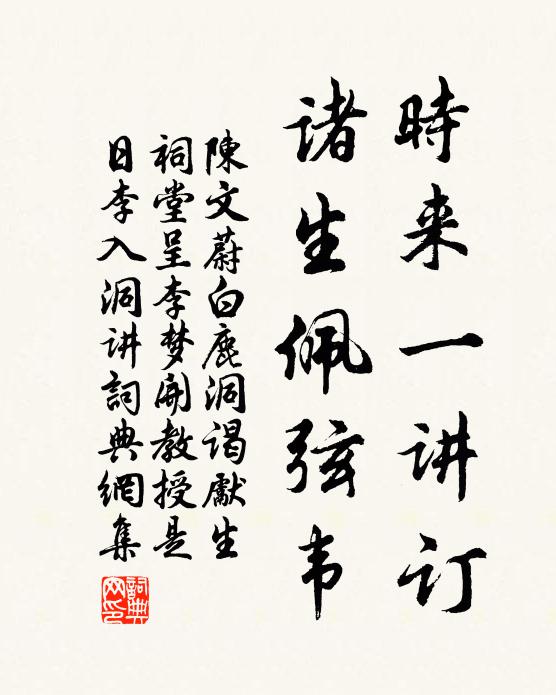 時来一讲订
诸生佩弦韦
陳文蔚白鹿洞谒獻生
祠堂呈李梦開教授是
日李入洞讲詞典網集
詞典網印